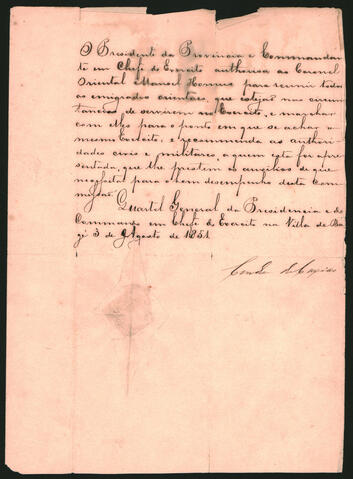 O Presidente da Provincia e Commandan
te em Chefe do Exercito authorisa ao Coronel
Oriental Manoel para reunir todos
os emigrados orientaes, que estejão nas circuns
tancias de servirem no Exercito, e marchar
com elles para o ponto em que se achar o
mesmo Exercito, e recommenda as authori
dades civis e militares, a quem esta for apre
sentada, que lhe prestem os auxilios de que
necessitar para o bom desempenho desta Com
missão. Quartel General da Presidencia e do
Commando em Chefe do Exercito na Villa de Ba
gé 3 de Agosto de 1851.
Conde de Caxias